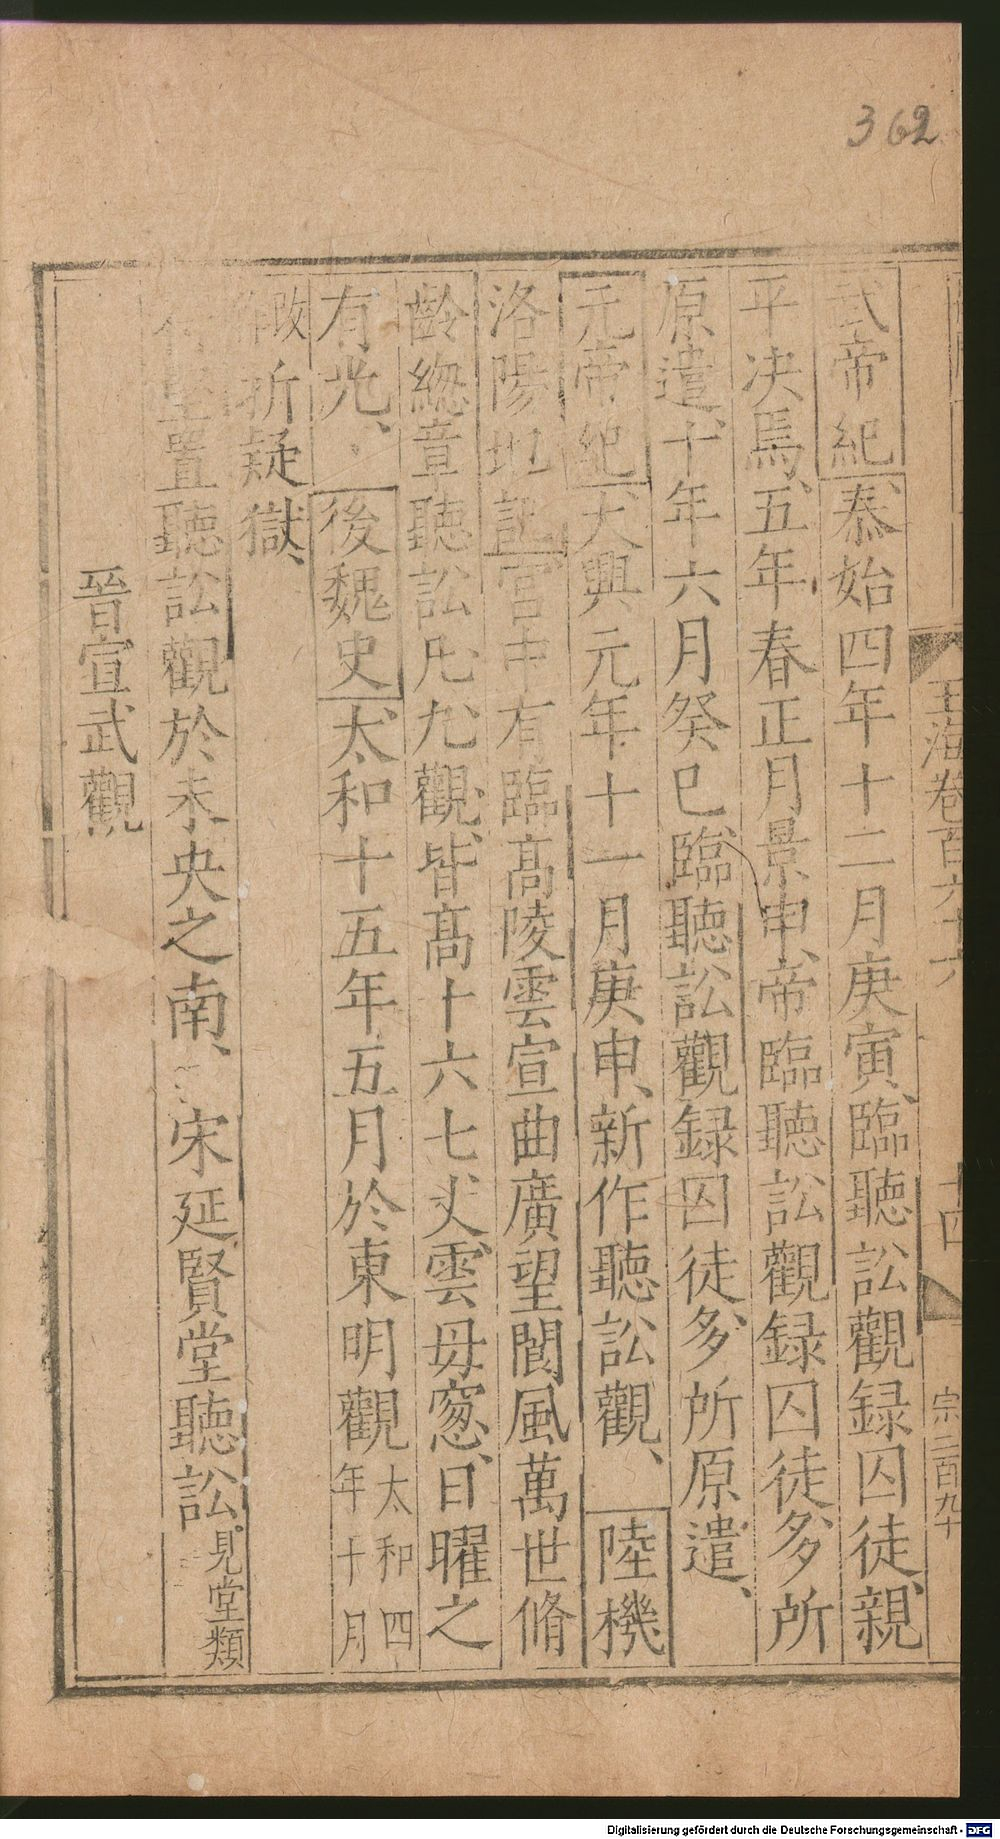 362
玉海卷百六十六 十四 宗三百九十
武帝紀泰始四年十二月庚寅臨聽訟觀録囚徒親
平决焉五年春正月景申帝臨聽訟觀録囚徒多所
原遣十年六月癸巳臨聽訟觀録囚徒多所原遣
元帝紀大興元年十一月庚申新作聽訟觀陸機
洛陽地記宫中有臨高陵雲宣曲廣望閬風萬世脩
齡緫章聽訟凡九觀皆高十六七丈雲母窓日曜之
有光後魏史太和十五年五月於東明觀太和四年十月
折疑獄
置聽訟觀於未央之南宋延賢堂聽訟見堂類
晉宣武觀
Digitalisierung gefördert durch die Deutsche Forschungsgemeinschaft - DFG